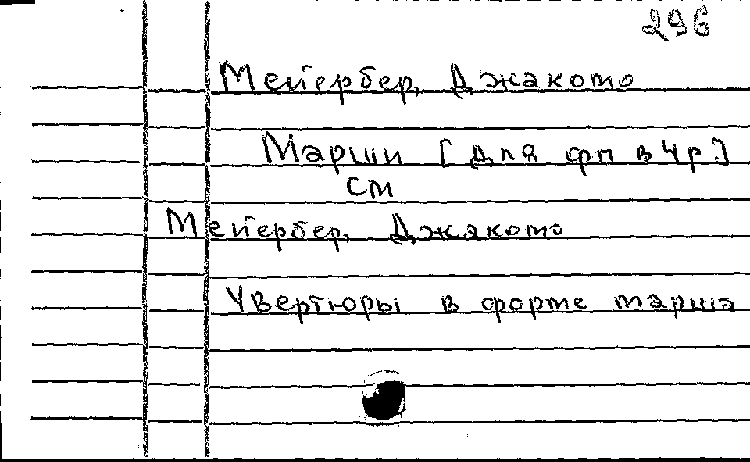 296
Мейербер, Джакомо
Марши [для фп в 4 р.]
см
Мейербер, Джакомо
Увертюры в форме марша